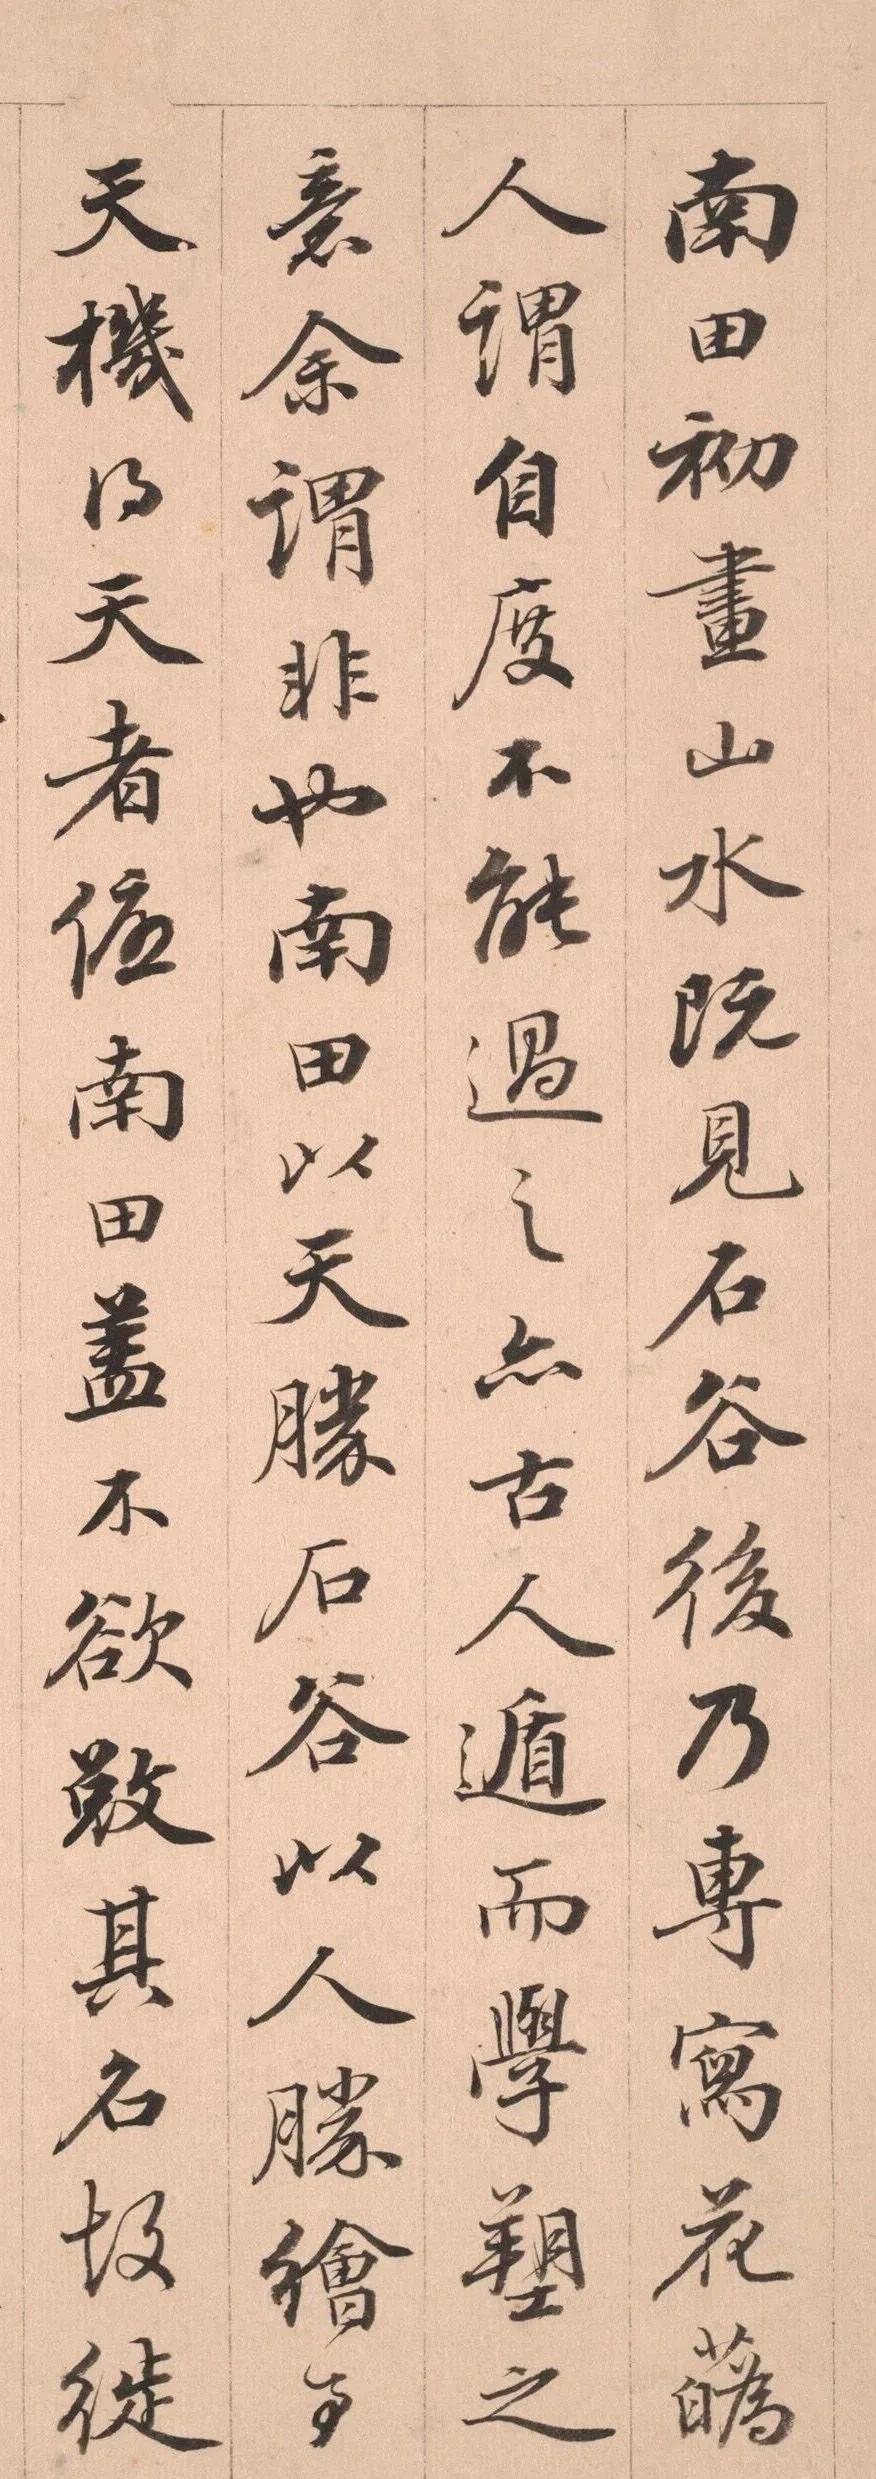 南田初畫山水既見石谷後乃專寫花蘤
人謂自度不能過之亦古人遁而學塑之
意余謂非也南田以天勝石谷以人勝繪事
天機得天者優南田蓋不欲敚其名故徙